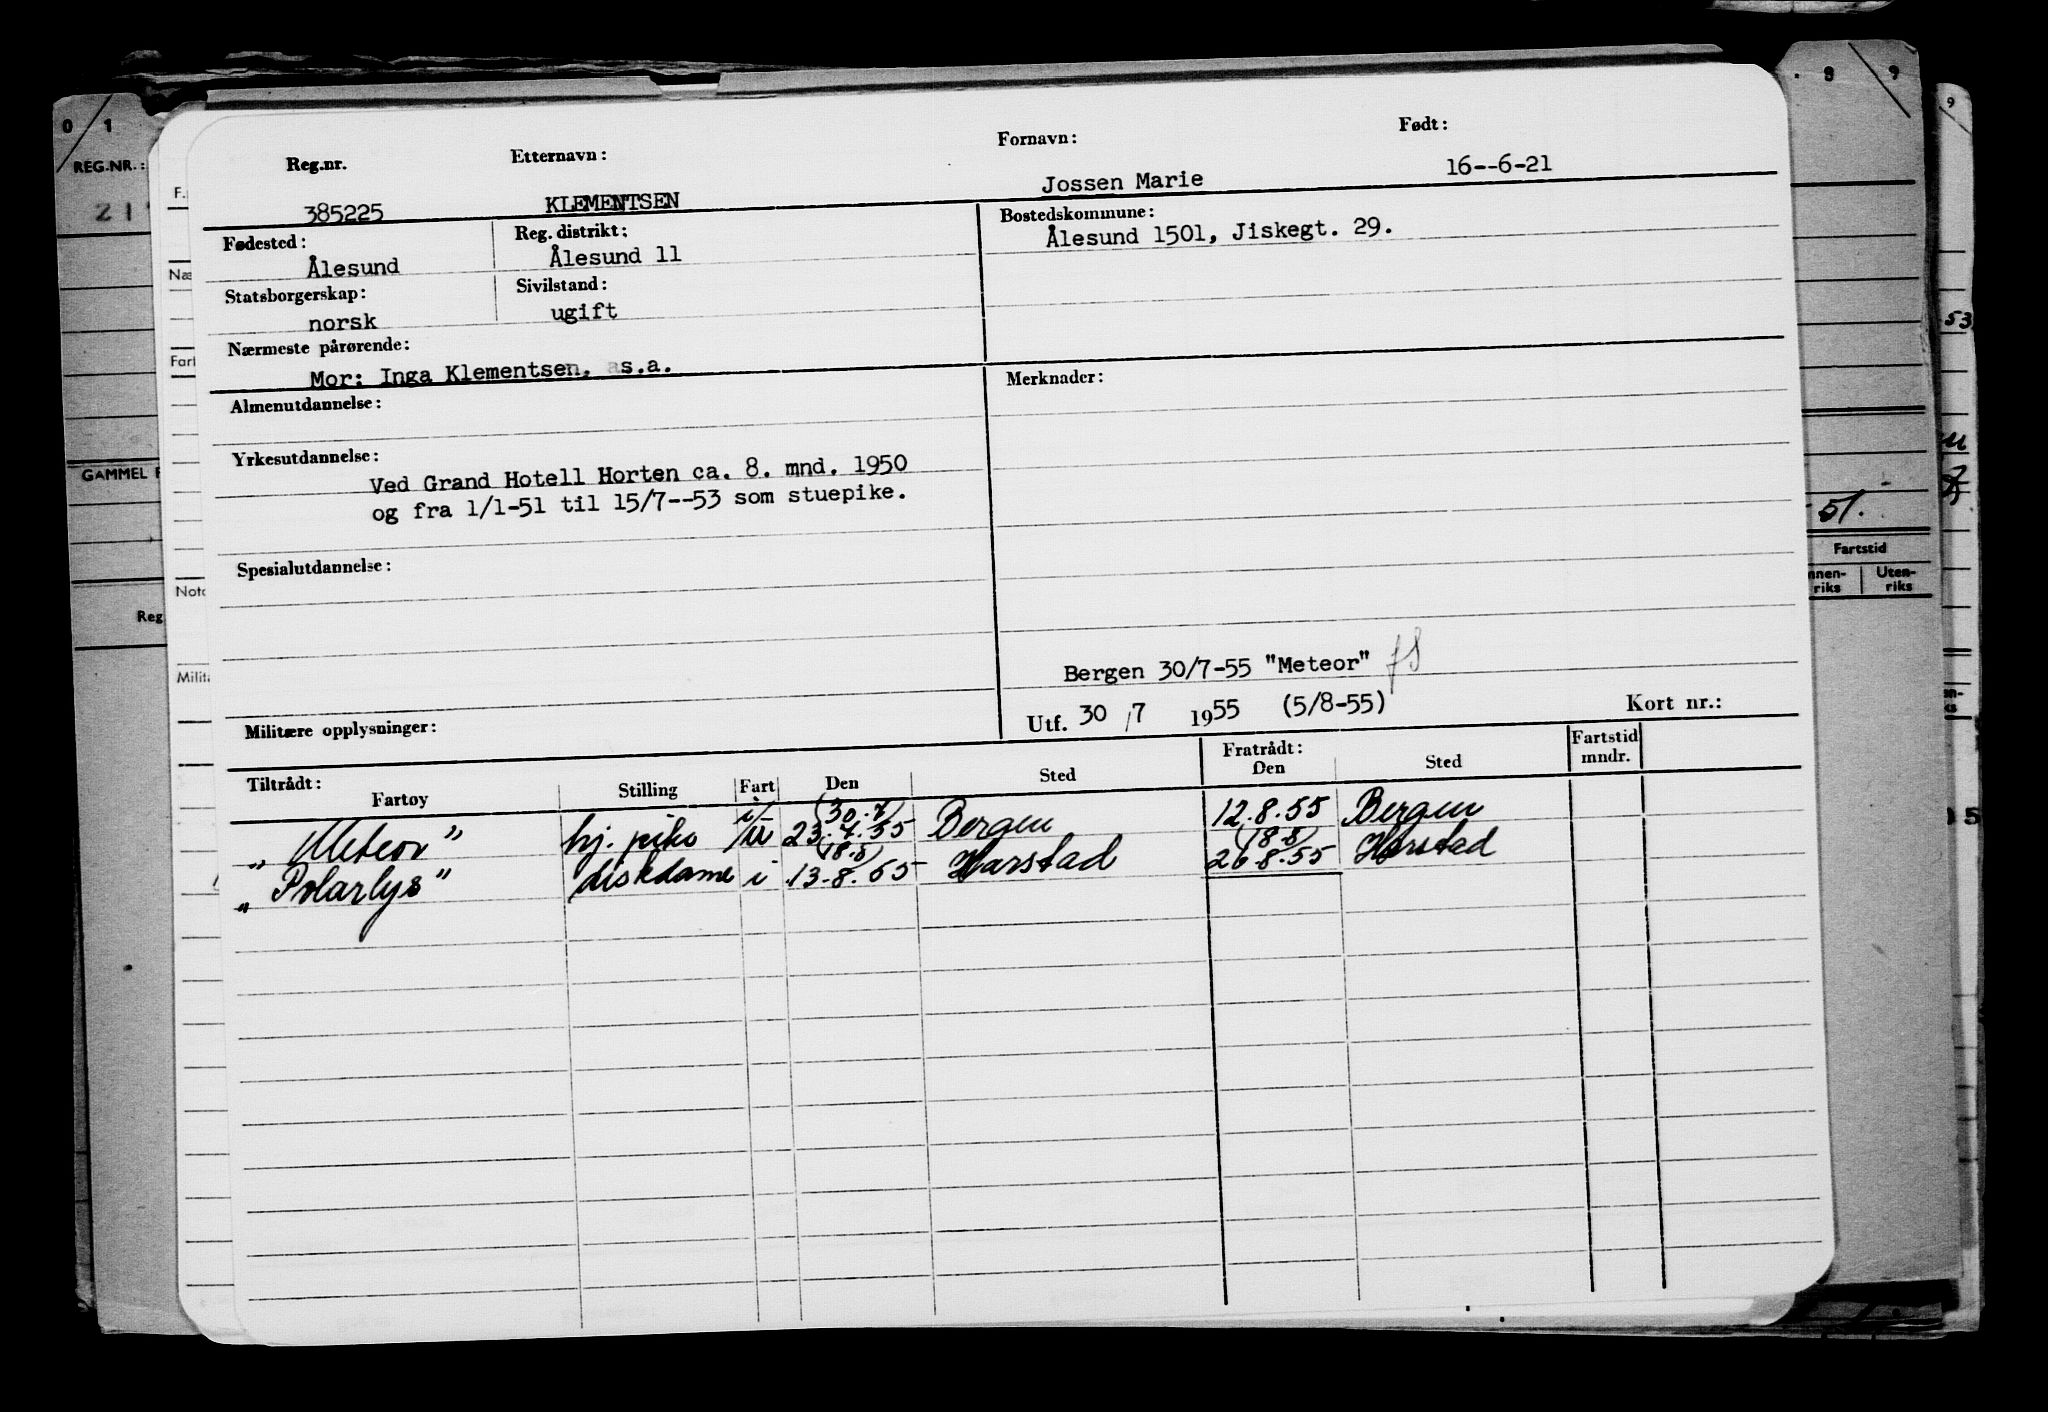 0 / 1
REG.NR.:
21
GAMMEL
Reg
F.
Næ
Fart
Noto
Milit
Reg.nr. Etternavn: Fornavn: Født:
385225 KLEMENTSEN Jossen Marie 16--6-21
Fødested: Reg. distrikt: Bostedskommune:
Ålesund Ålesund 11 Ålesund 1501, Jiskegt. 29.
Statsborgerskap: Sivilstand:
norsk ugift
Nærmeste pårørende:
Mor: Inga Klementsen, as.a.
Almenutdannelse: Merknader:
Yrkesutdannelse:
Ved Grand Hotell Horten ca. 8. mnd. 1950
og fra 1/1-51 til 15/7--53 som stuepike.
Spesialutdannelse:
Bergen 30/7-55 "Meteor"
Militære opplysninger: Utf. 30 /7 1955 (5/8-55) Kort nr.:
Tiltrådt: Fratrådt: Fartstid
Fartøy Stilling Fart Den Sted Den Sted mndr.
(30.7)
„Meteor" hj. pike i/u 23.7.55 Bergen 12.8.55 Bergen
(18.8) (18.8)
„Polarlys" diskdame i 13.8.55 Harstad 26.8.55 Harstad
8 9
9
53
51.
Fartstid
nnen-
riks
Uten-
riks